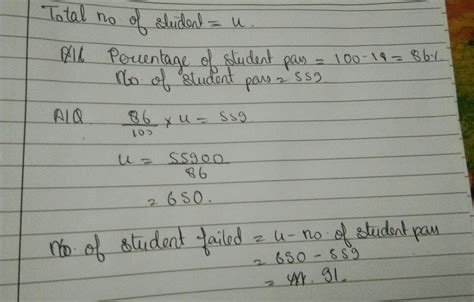 Total no of student = u.
A/Q Percentage of student pass = 100-14 = 86%
No of student pass = 559
A/Q 86/100 x u = 559.
u = 55900/86
= 650.
No of student failed = u - no. of student pass
= 650 - 559
= 91.